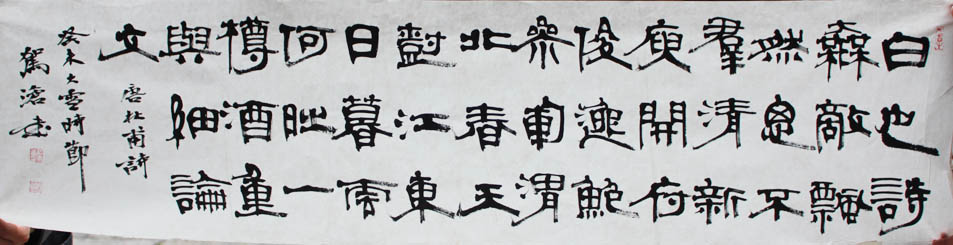 白也詩
無敵飄
然思不
羣清新
庾開府
俊逸鮑
參軍渭
北春天
樹江東
日暮雲
何時一
樽酒重
與細論
文
唐杜甫詩
癸未大雪時節
駕滄書